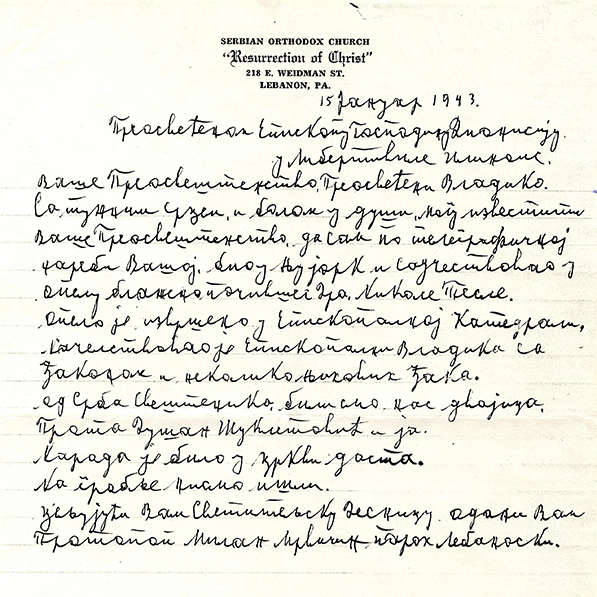 SERBIAN ORTHODOX CHURCH
"Resurrection of Christ"
218 E. WEIDMAN ST.
LEBANON, PA.
15 Јануар 1943.
Преосвећеном Епископу Господину Дионисију.
у Либертивиле Илиноис.
Ваше Преосвештенство, Преосвећени Владико.
Са тужним срцем, и болом у души, могу известити
Ваше Преосвештенство, да сам по телеграфичкој
наредби Вашој, био у Њујорк и саучествовао у
опелу блаженопочившег Дра. Николе Тесле.
Опело је извршено у Епископалној Катедрали,
Началствовао је Епископални Владика са
ђаконом и неколико њиховик ђака.
од Срба Свештеника, били смо нас двојица,
Прота Душан Шуклетовић и ја.
Народа је било у цркви доста.
На гробље нисмо ишли.
Целујући Вам Светитељску Десницу. одани Вам
Протопоп Милан Мрвичин, парох Лебаноски.